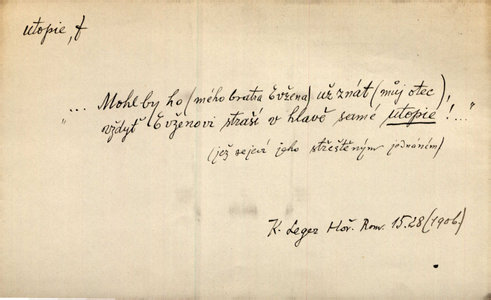 utopie, f
"... Mohl by ho (mého bratra Evžena) už znát (můj otec),
vždyť Evženovi straší v hlavě samé utopie!..."
(jež se jeví jeho střeštěným jednáním)
K. Leger Hoř. Rom. 15.28 (1906)